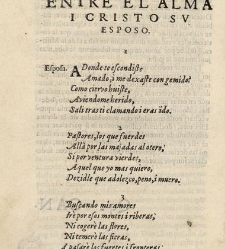 ENTRE EL ALMA
I CRISTO SV
ESPOSO.
1
Esposa. A Donde te escondiste
Amado, i me dexaste con gemido?
Como ciervo huiste,
Aviendome herido,
Sali tras ti clamando i eras ido.
2
Pastores, los que fuerdes
Allà por las majadas al otero,
Si por ventura vierdes,
Aquel que yo mas quiero,
Dezilde que adolezco, peno, i muero.
3
Buscando mis amores
Irè por esos montes i riberas,
Ni cogerè las flores,
Ni temerè las fieras,
I pasarè los fuertes i fronteras.